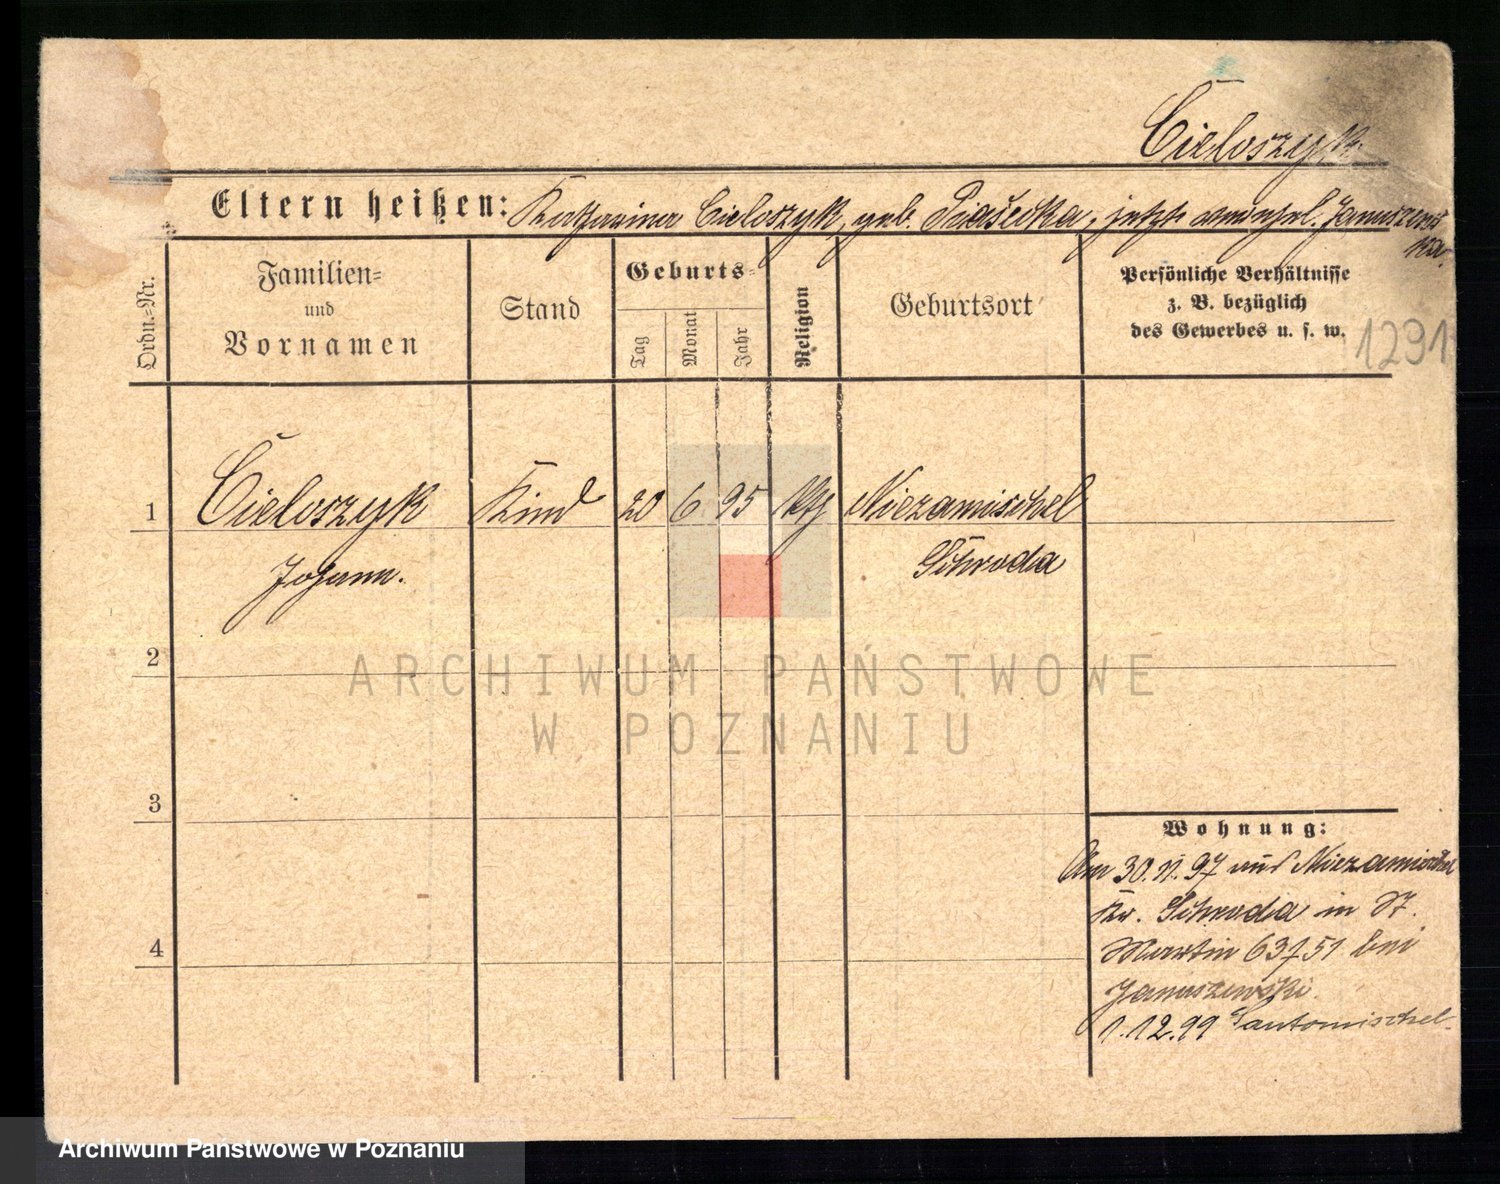 Cieloszyk
Eltern heißen: Katharina Cieloszyk, geb. Piasecka, jetzt verehel. Januszews
ka.
Ordn.=Nr.
Familien=
und
Vornamen
Stand
Geburts=
Tag
Monat
Jahr
Religion
Geburtsort
Persönliche Verhältnisse
z. B. bezüglich
des Gewerbes u. s. w.
1291
1 Cieloszyk Kind 20 6 95 kth Niezamischel
Johann. Schroda
2
3
4
Wohnung:
Am 30.11.97 aus Niezamischel
Kr. Schroda in St.
Martin 63 bei
Januszewski.
1.12.99 Santomischel.
ARCHIWUM PAŃSTWOWE
W POZNANIU
Archiwum Państwowe w Poznaniu